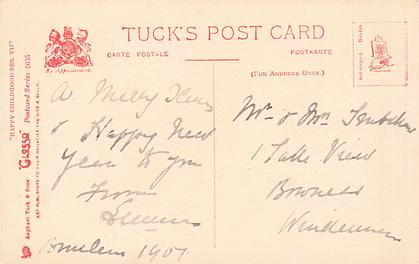 TUCK'S POST CARD
CARTE POSTALE
POSTKARTE
(FOR ADDRESS ONLY.)
By Appointment.
"HAPPY CHILDHOOD SER. VII"
"Glosso" Postcard Series 5615
Raphael Tuck & Sons'
ART PUBLISHERS TO THEIR MAJESTIES THE KING & QUEEN.
A Merry Xmas
& Happy New
Year to you
From
1907
Mr & Mrs
1 Lake View
Bowness
Windermere